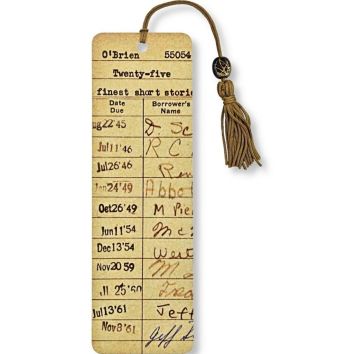 O'Brien 55054
Twenty-five
finest short storie
Date Due Borrower's Name
ug 22'45 D. Sc
Jul 11'46 R C
Jul 26'46 Ren
an 24'49 Abbo
Oct 26'49 M Pic
Jun 11'54 Mc
Dec 13'54 West
Nov 20 59 M
Jl 25'60
Jul 13'61 Jeff
Nov 8'61 Jeff S